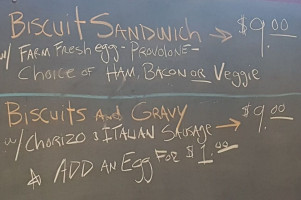 Biscuit Sandwich → $9.00
w/ Farm Fresh egg - Provolone -
Choice of Ham, Bacon or Veggie
Biscuits and Gravy → $9.00
w/ Chorizo & Italian Sausage
Add an Egg for $1.00